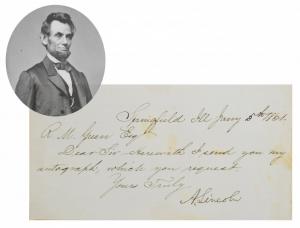 Springfield Ill Jany 5th 1861.
R. M. Green Esq
Dear Sir Herewith I send you my
autograph, which you request.
Yours Truly
A Lincoln